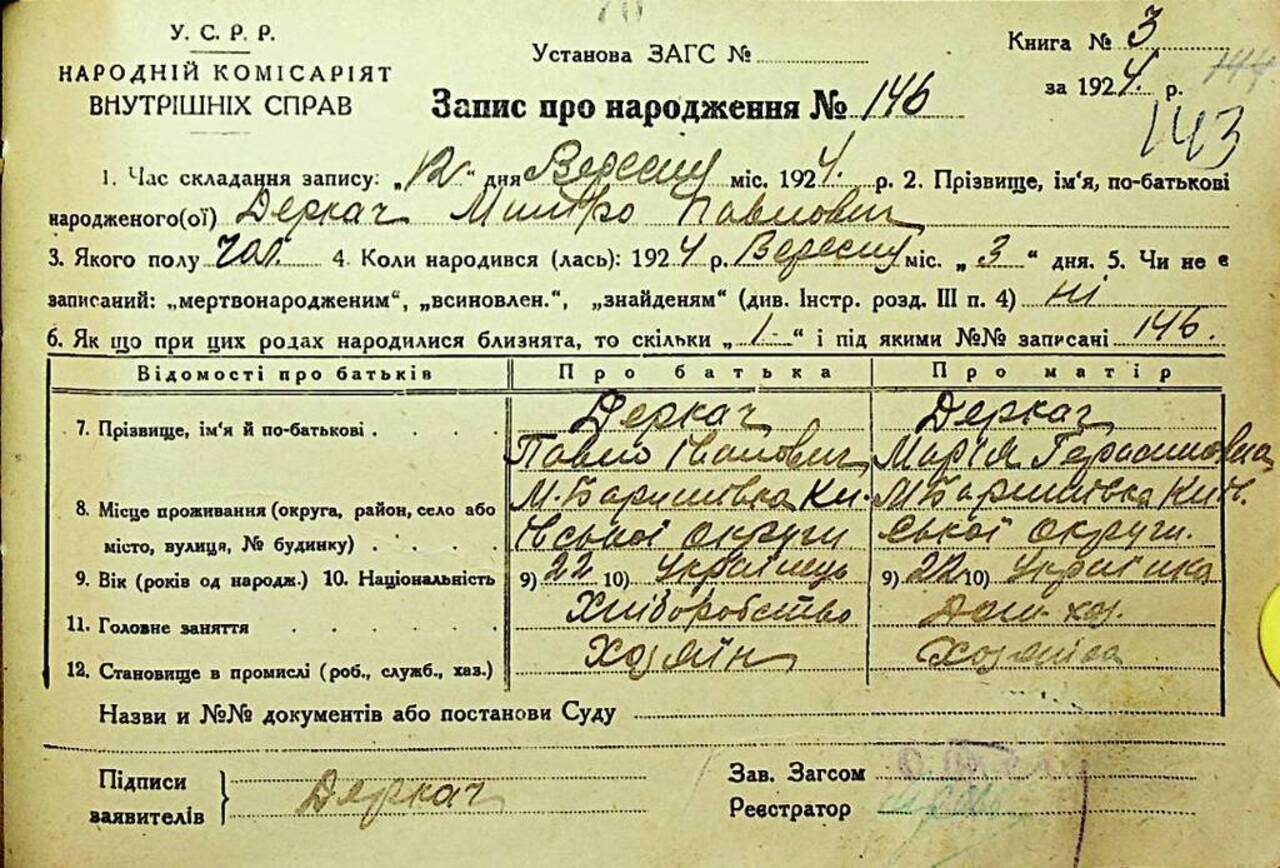 У. С. Р. Р.
НАРОДНІЙ КОМІСАРІЯТ
ВНУТРІШНІХ СПРАВ
Установа ЗАГС №
Книга № 3
за 1924. р. 144
Запис про народження № 146
143
1. Час складання запису: „12“ дня Вересня міс. 1924. р. 2. Прізвище, ім'я, по-батькові
народженого(ої) Деркач Митро Павлович
3. Якого полу чол. 4. Коли народився (лась): 1924 р. Вересня міс. „3“ дня. 5. Чи не є
записаний: „мертвонародженим“, „всиновлен.“, „знайденям“ (див. Інстр. розд. III п. 4) ні
6. Як що при цих родах народилися близнята, то скільки „1-“ і під якими №№ записані 146.
Відомості про батьків Про батька Про матір
7. Прізвище, ім'я й по-батькові Деркач Деркач
Павло Іванович Марія Герасимовна
8. Місце проживання (округа, район, село або М. Баришівка Ки- М Баришівка Київ.
місто, вулиця, № будинку) ївської округи ської округи.
9. Вік (років од народж.) 10. Національність 9) 22 10) Українець 9) 22 10) Українка
11. Головне заняття Хліборобство Дом. хоз.
12. Становище в промислі (роб., служб., хаз.) Хозяїн Хозяїка
Назви и №№ документів або постанови Суду
Підписи
заявителів } Деркач
Зав. Загсом
Реєстратор